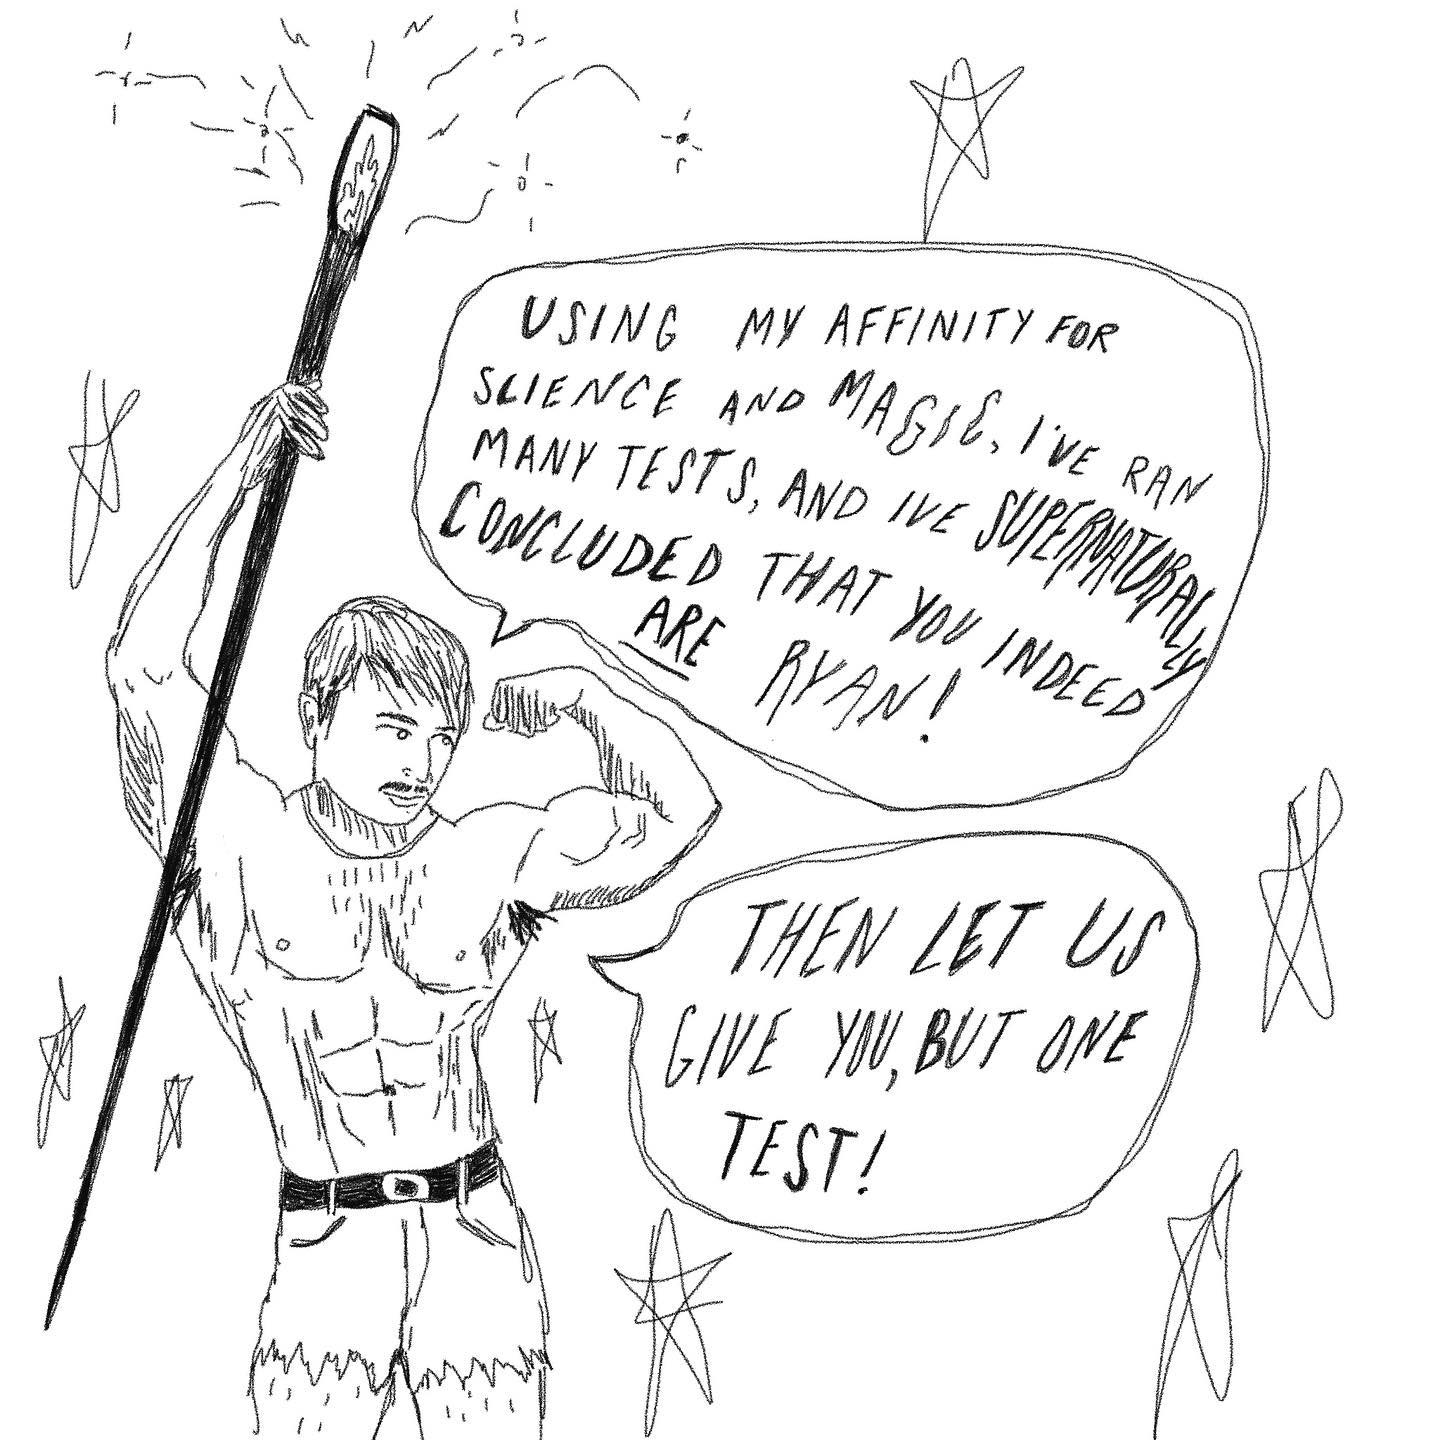 USING MY AFFINITY FOR
SCIENCE AND MAGIC, I'VE RAN
MANY TESTS, AND IVE SUPERNATURALLY
CONCLUDED THAT YOU INDEED
ARE RYAN!
THEN LET US
GIVE YOU, BUT ONE
TEST!